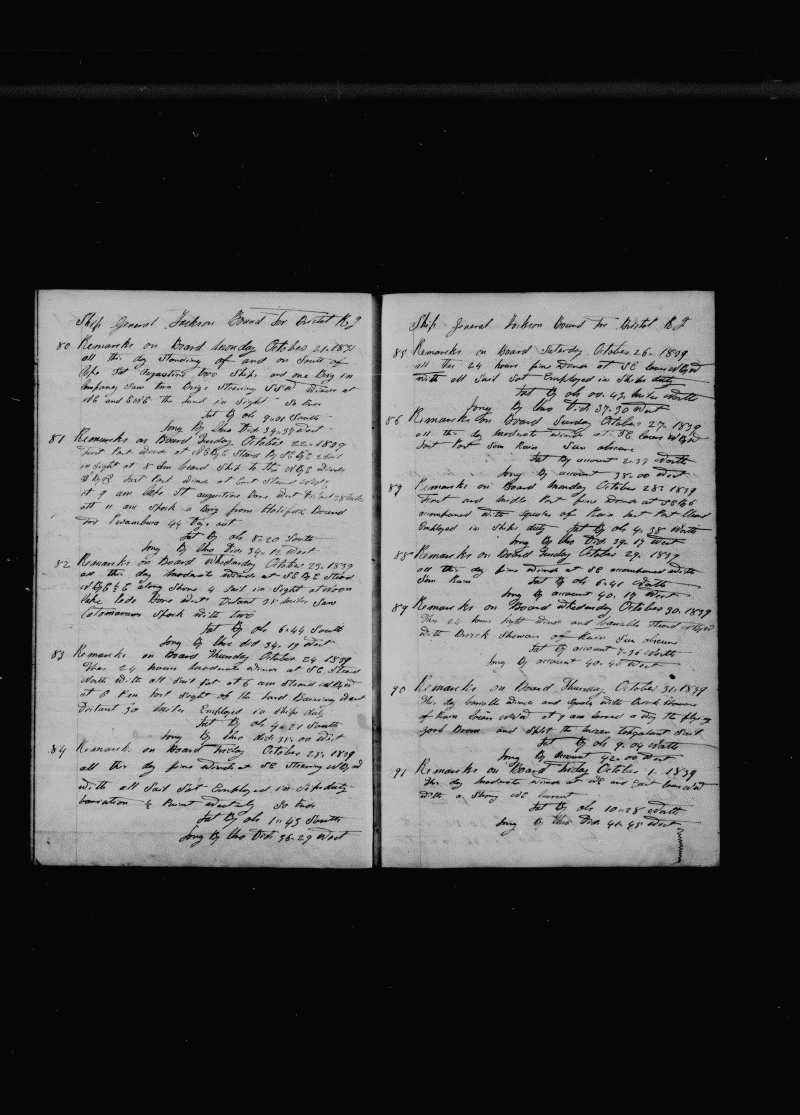 Ship General Jackson Bound for Bristol R I
80 Remarks on Board Monday October 21. 1839
all this day Standing of and on South of
Cape Sat Augustine two Ships and one Brig in
Company Saw two Brigs Steering SSW winds at
the land in Sight So Ends
Lat By ob 9..01 South
Long By Chro Did. 34..37 West
81 Remarks on Board Tuesday October 22. 1839
first Part winds at Stand By
in Sight at 8 Sun heard Ship to the winds
Last Part winds at East
at 9 am Cape St augustine bore West Distant 28 miles
att 11 am Spock a Brig from Halifax Bound
for Pernambuco 44 Days out
Lat By ob 8..20 South
Long By Chro Did. 34..12 West
82 Remarks on Board Whednsday October 23. 1839
all this day moderate winds at SEBE Stand
along Shore 4 Sail in Sight at noon
Cape Ledo Bore West Distant 35 miles Saw
Catomarans Spock with two
Lat By ob 6..44 South
Long By Chro did 34..19 West
83 Remarks on Board Thursday October 24 1839
These 24 hours moderate winds at SE Stand
North with all Sail Sat at 6 am Steard
at 8 Pm lost Sight of the land Barring West
Distant 30 miles Employed in Ships duty
Lat By ob 4..21 South
Long By Chro did. 35..00 West
84 Remarks on Board Friday October 25. 1839
all this day fine winds at SE Steering NBW
with all Sail Sat Employed in Ships duty
Variation ½ Point westerly So Ends
Lat By ob 1..43 South
Long By Chro Did. 36..29 West
Ship General Jackson Bound for Bristol R I
85 Remarks on Board Saterday October. 26. 1839
all this 24 hours fine winds at SE
with all Sail Sat Employed in Ships duty
Lat By ob 00..43 miles North
Long By Chro Did. 37..30 West
86 Remarks on Board Sunday October 27. 1839
all this day moderate winds at SE
Last Part Som Rain Sun obscure
Lat By account 2..39 North
Long By account 38..00 West
87 Remarks on Board Monday October 28. 1839
First and middle Part fine winds at
accompaned with Squales of Rain last Part
Employed in Ships duty Lat By ob 4..38 North
Long By Chro Did. 39..17 West
88 Remarks on Board Tuesday October 29. 1839
all this day fine winds at SE accompaned with
Som Rain Lat By ob 6..41 North
Long By account 40..19 West
89 Remarks on Board Whednsday October 30. 1839
This 24 hours light winds and Variable Steard
with Brisk Showers of Rain Sun obscure
Lat By account 7..36 North
Long By account 40..45 West
90 Remarks on Board Thursday October 31. 1839
This day Variable winds and Squaly with
of Rain at 7 am the flying
Boom and Split the mizen topgalant Sail
Lat By ob 9..04 North
Long By account 42..00 West
91 Remarks on Board Friday October 1. 1839
This day moderate winds at NE and East
with a Strong NE Current
Lat By ob 10..28 North
Long By Chro Did.